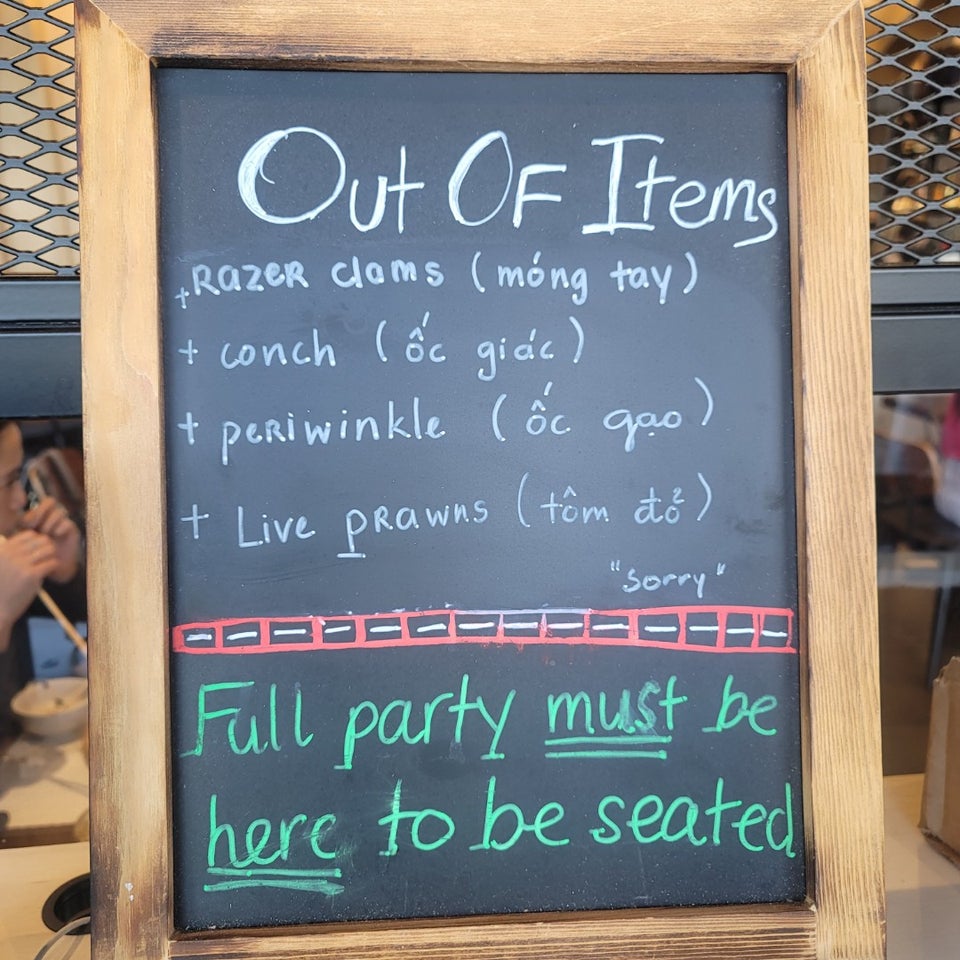 Out Of Items
+ Razer clams (móng tay)
+ conch (ốc giác)
+ periwinkle (ốc gạo)
+ Live prawns (tôm đỏ)
"sorry"
Full party must be
here to be seated